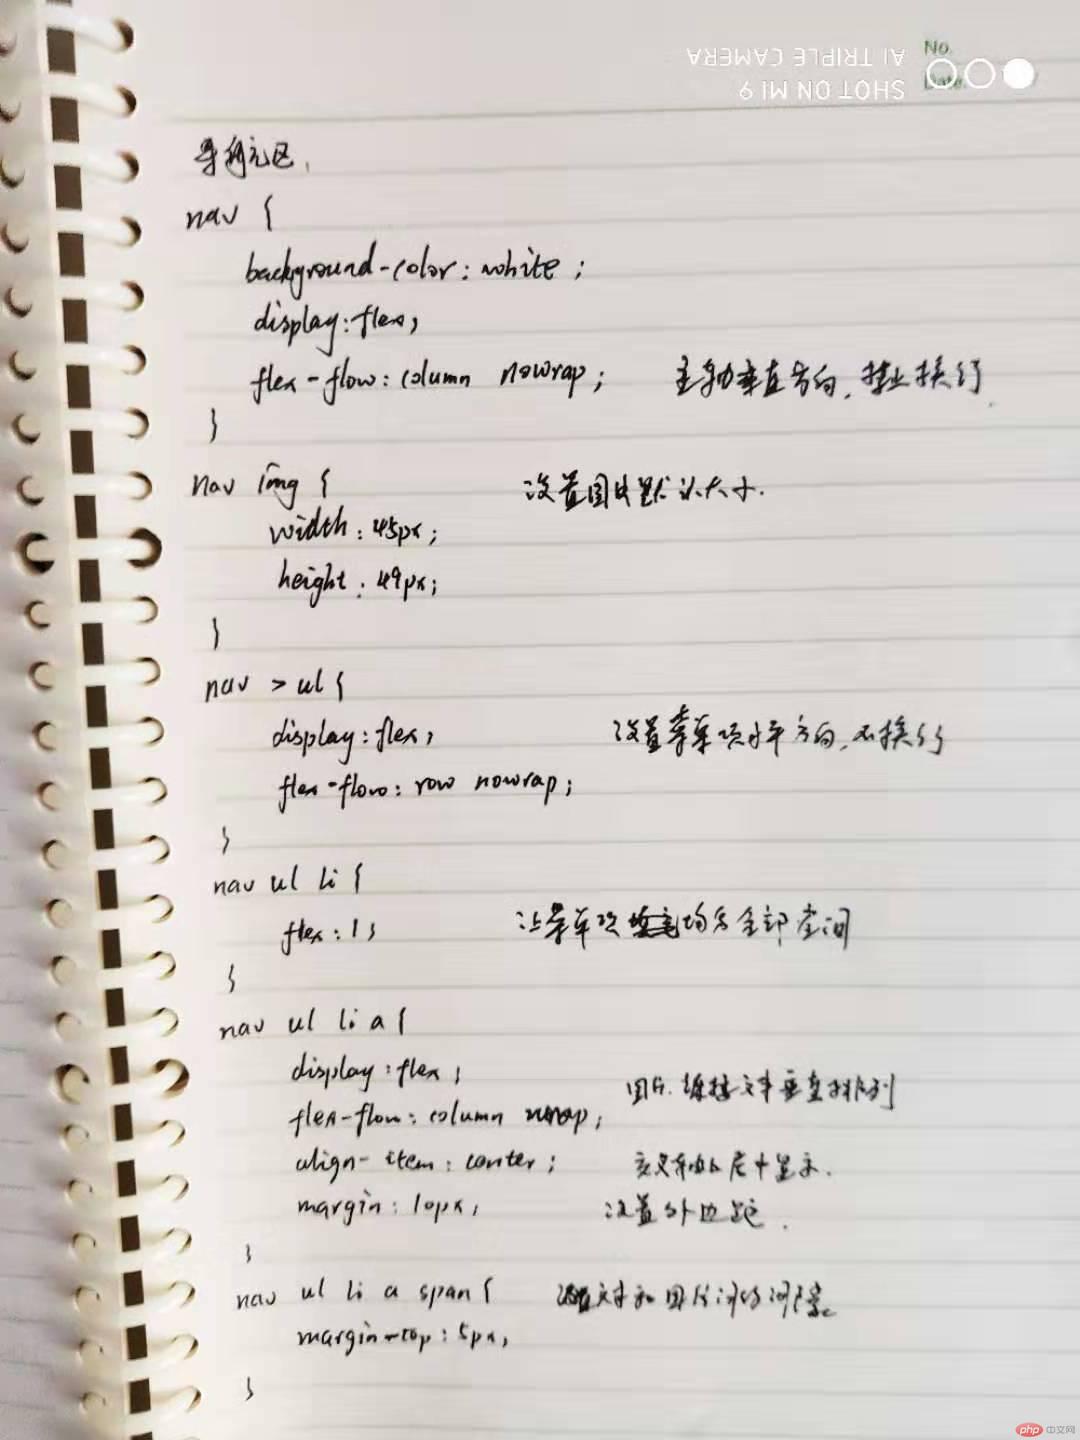 No.
Date.
SHOT ON MI 9
AI TRIPLE CAMERA
导航区,
nav {
background-color: white ;
display: flex;
flex-flow: column nowrap; 主轴垂直方向, 禁止换行.
}
nav img { 设置图片默认大小.
width: 45px;
height: 49px;
}
nav > ul {
display: flex; 设置菜单项水平方向, 不换行
flex-flow: row nowrap;
}
nav ul li {
flex: 1; 让菜单项均分全部空间
}
nav ul li a {
display: flex;
flex-flow: column nowrap; 图片, 链接文本垂直排列
align-item: center; 交叉轴上居中显示.
margin: 10px; 设置外边距.
}
nav ul li a span { 设置文本和图片间的间隙
margin-top: 5px;
}
php 中文网